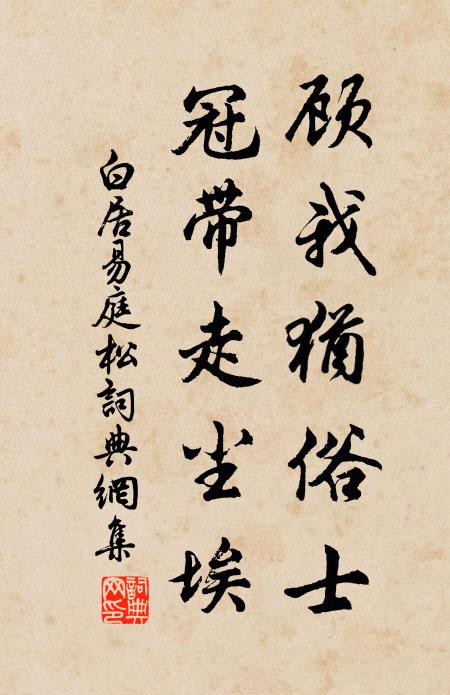 顾我犹俗士
冠带走尘埃
白居易庭松詞典網集
詞典網印